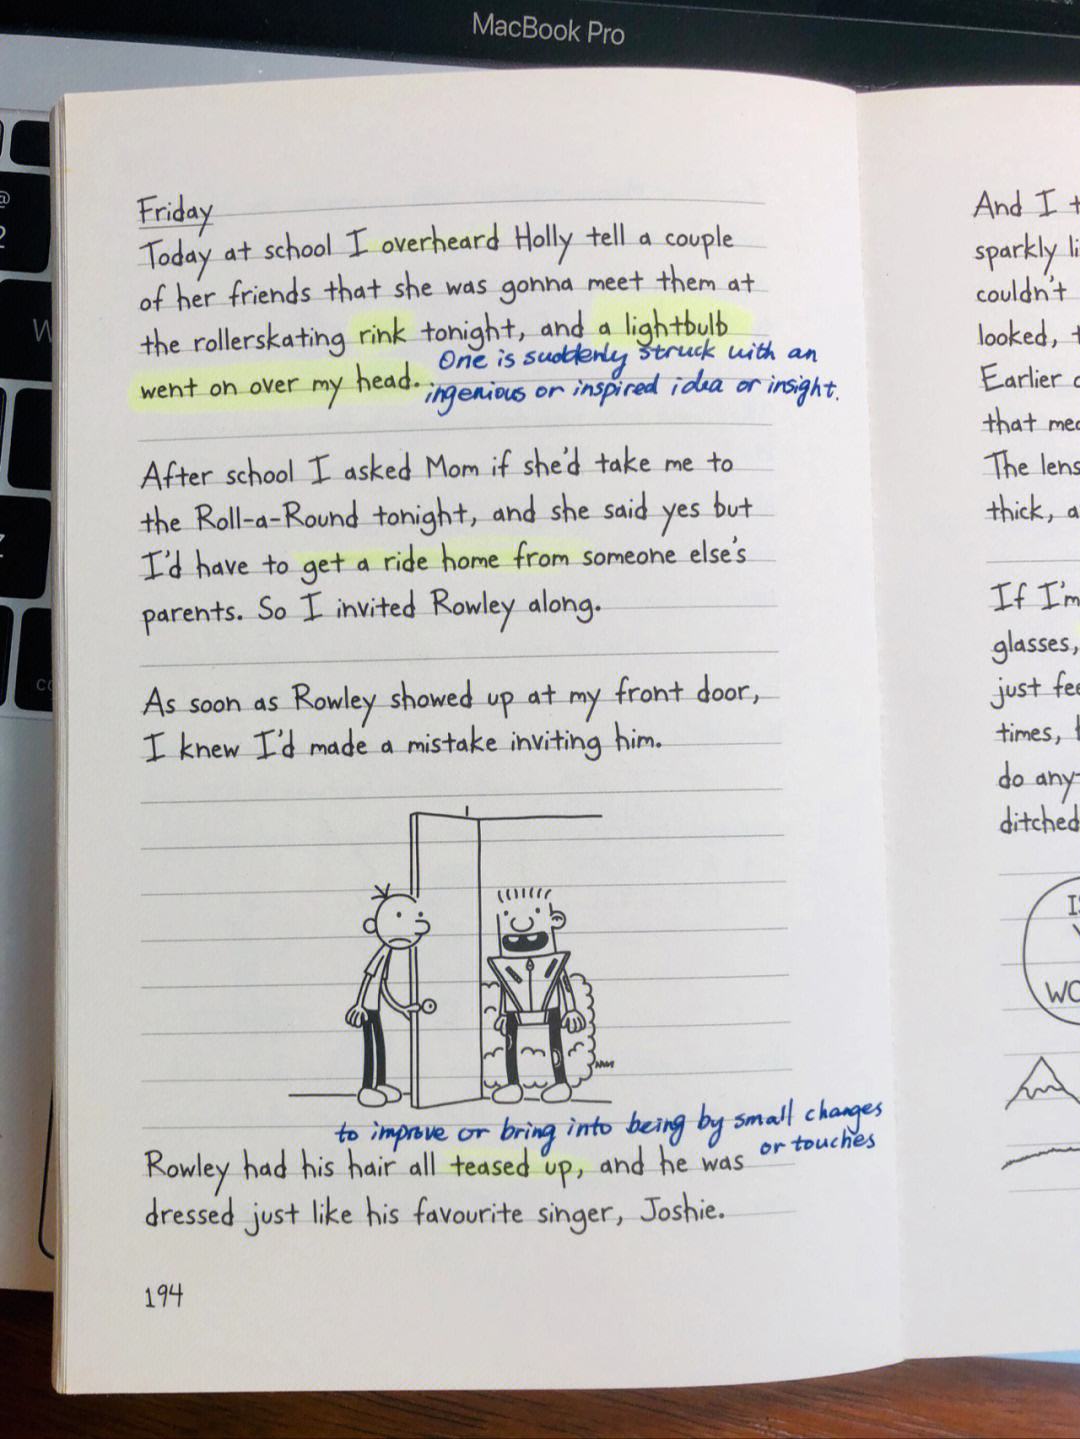 MacBook Pro
@
2
W
Z
Friday
Today at school I overheard Holly tell a couple
of her friends that she was gonna meet them at
the rollerskating rink tonight, and a lightbulb
One is suddenly struck with an
went on over my head.
ingenious or inspired idea or insight.
After school I asked Mom if she'd take me to
the Roll-a-Round tonight, and she said yes but
I'd have to get a ride home from someone else's
parents. So I invited Rowley along.
As soon as Rowley showed up at my front door,
I knew I'd made a mistake inviting him.
to improve or bring into being by small changes
or touches
Rowley had his hair all teased up, and he was
dressed just like his favourite singer, Joshie.
194
And I
sparkly
couldn't
looked,
Earlier
that
The lens
thick,
If I'm
glasses,
just
times,
do any-
ditched